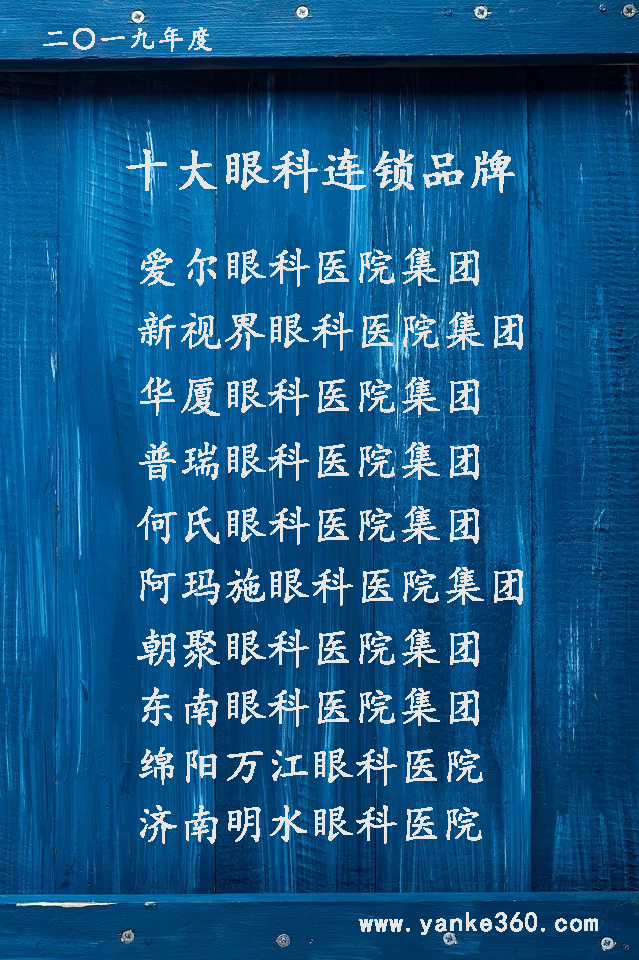 二〇一九年度
十大眼科连锁品牌
爱尔眼科医院集团
新视界眼科医院集团
华厦眼科医院集团
普瑞眼科医院集团
何氏眼科医院集团
阿玛施眼科医院集团
朝聚眼科医院集团
东南眼科医院集团
绵阳万江眼科医院
济南明水眼科医院
www.yanke360.com